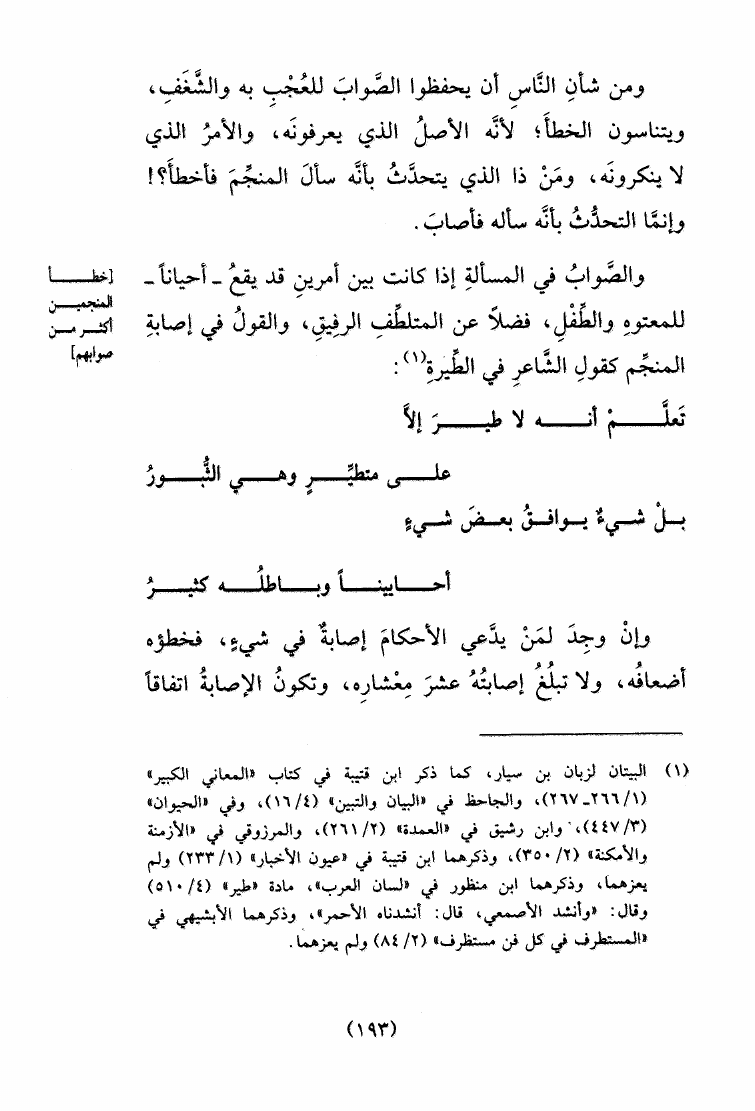 ومن شأنِ النَّاسِ أن يحفظوا الصَّوابَ للعُجْبِ به والشَّغَفِ،
ويتناسون الخطأَ؛ لأنَّه الأصلُ الذي يعرفونَه، والأمرُ الذي
لا ينكرونَه، ومَنْ ذا الذي يتحدَّثُ بأنَّه سألَ المنجِّمَ فأخطأَ؟!
وإنمَّا التحدُّثُ بأنَّه سأله فأصابَ.
والصَّوابُ في المسألةِ إذا كانت بين أمرينِ قد يقعُ ـ أحياناً ـ
للمعتوهِ والطِّفْلِ، فضلاً عن المتلطِّفِ الرفيقِ، والقولُ في إصابةِ
المنجِّم كقولِ الشَّاعرِ في الطِّيرةِ(١):
[خطأ
المنجمين
أكثر من
صوابهم]
تَعلَّمْ أنه لا طيرَ إلاَّ
على متطيِّرٍ وهي الثُّبورُ
بلْ شيءٌ يوافقُ بعضَ شيءٍ
أحاييناً وباطلُه كثيرُ
وإنْ وجِدَ لمَنْ يدَّعي الأحكامَ إصابةٌ في شيءٍ، فخطؤه
أضعافُه، ولا تبلُغُ إصابتُهُ عشرَ مِعْشارِه، وتكونُ الإصابةُ اتفاقاً
(١) البيتان لزبان بن سيار، كما ذكر ابن قتيبة في كتاب «المعاني الكبير»
(١/ ٢٦٦ـ ٢٦٧)، والجاحظ في «البيان والتبين» (٤/ ١٦)، وفي «الحيوان»
(٣/ ٤٤٧)، وابن رشيق في «العمدة» (٢/ ٢٦١)، والمرزوقي في «الأزمنة
والأمكنة» (٢/ ٣٥٠)، وذكرهما ابن قتيبة في «عيون الأخبار» (١/ ٢٣٣) ولم
يعزهما، وذكرهما ابن منظور في «لسان العرب»، مادة «طير» (٤/ ٥١٠)
وقال: «وأنشد الأصمعي، قال: أنشدناه الأحمر»، وذكرهما الأبشيهي في
«المستطرف في كل فن مستظرف» (٢/ ٨٤) ولم يعزهما.
(١٩٣)